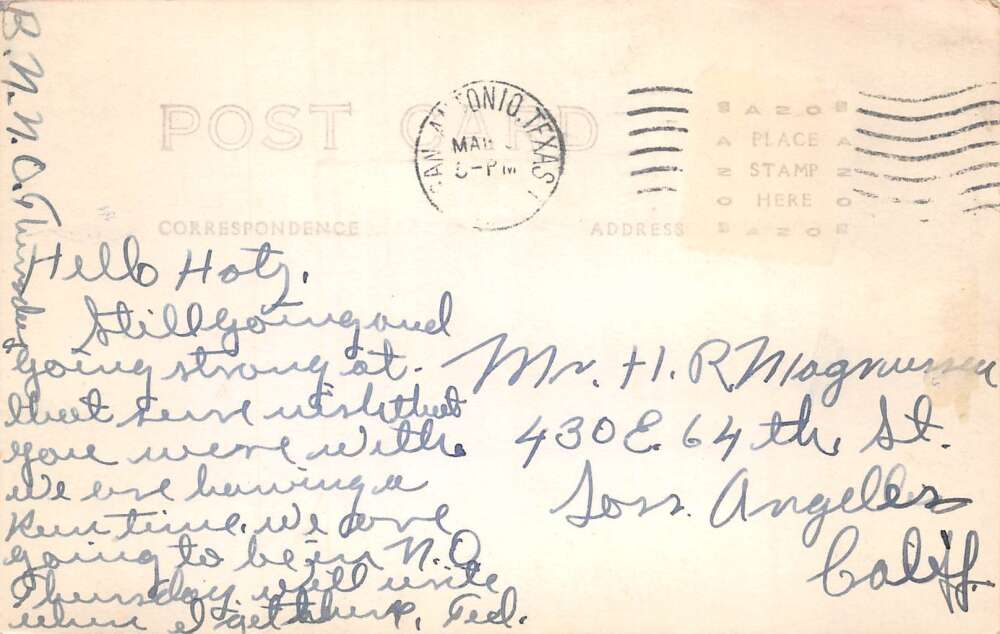 POST CARD
SAN ANTONIO, TEXAS
MAR
PM
AZO
PLACE
STAMP
HERE
AZO
CORRESPONDENCE
ADDRESS
Hello Hotz.
Still going and
going strong at.
that sure wish that
you were with
We are having a
time. We are
going to be in N.O.
Thursday will write
when I get there, Ted.
Mr. H. R. Magnussen
430 E. 64th. St.
Loss. Angelles
Califf.
B. N. N. O. Thursday